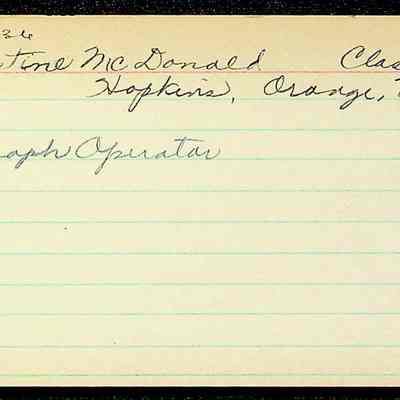 36
tine McDonald Clas
Hopkins, Orange,
aph Operator